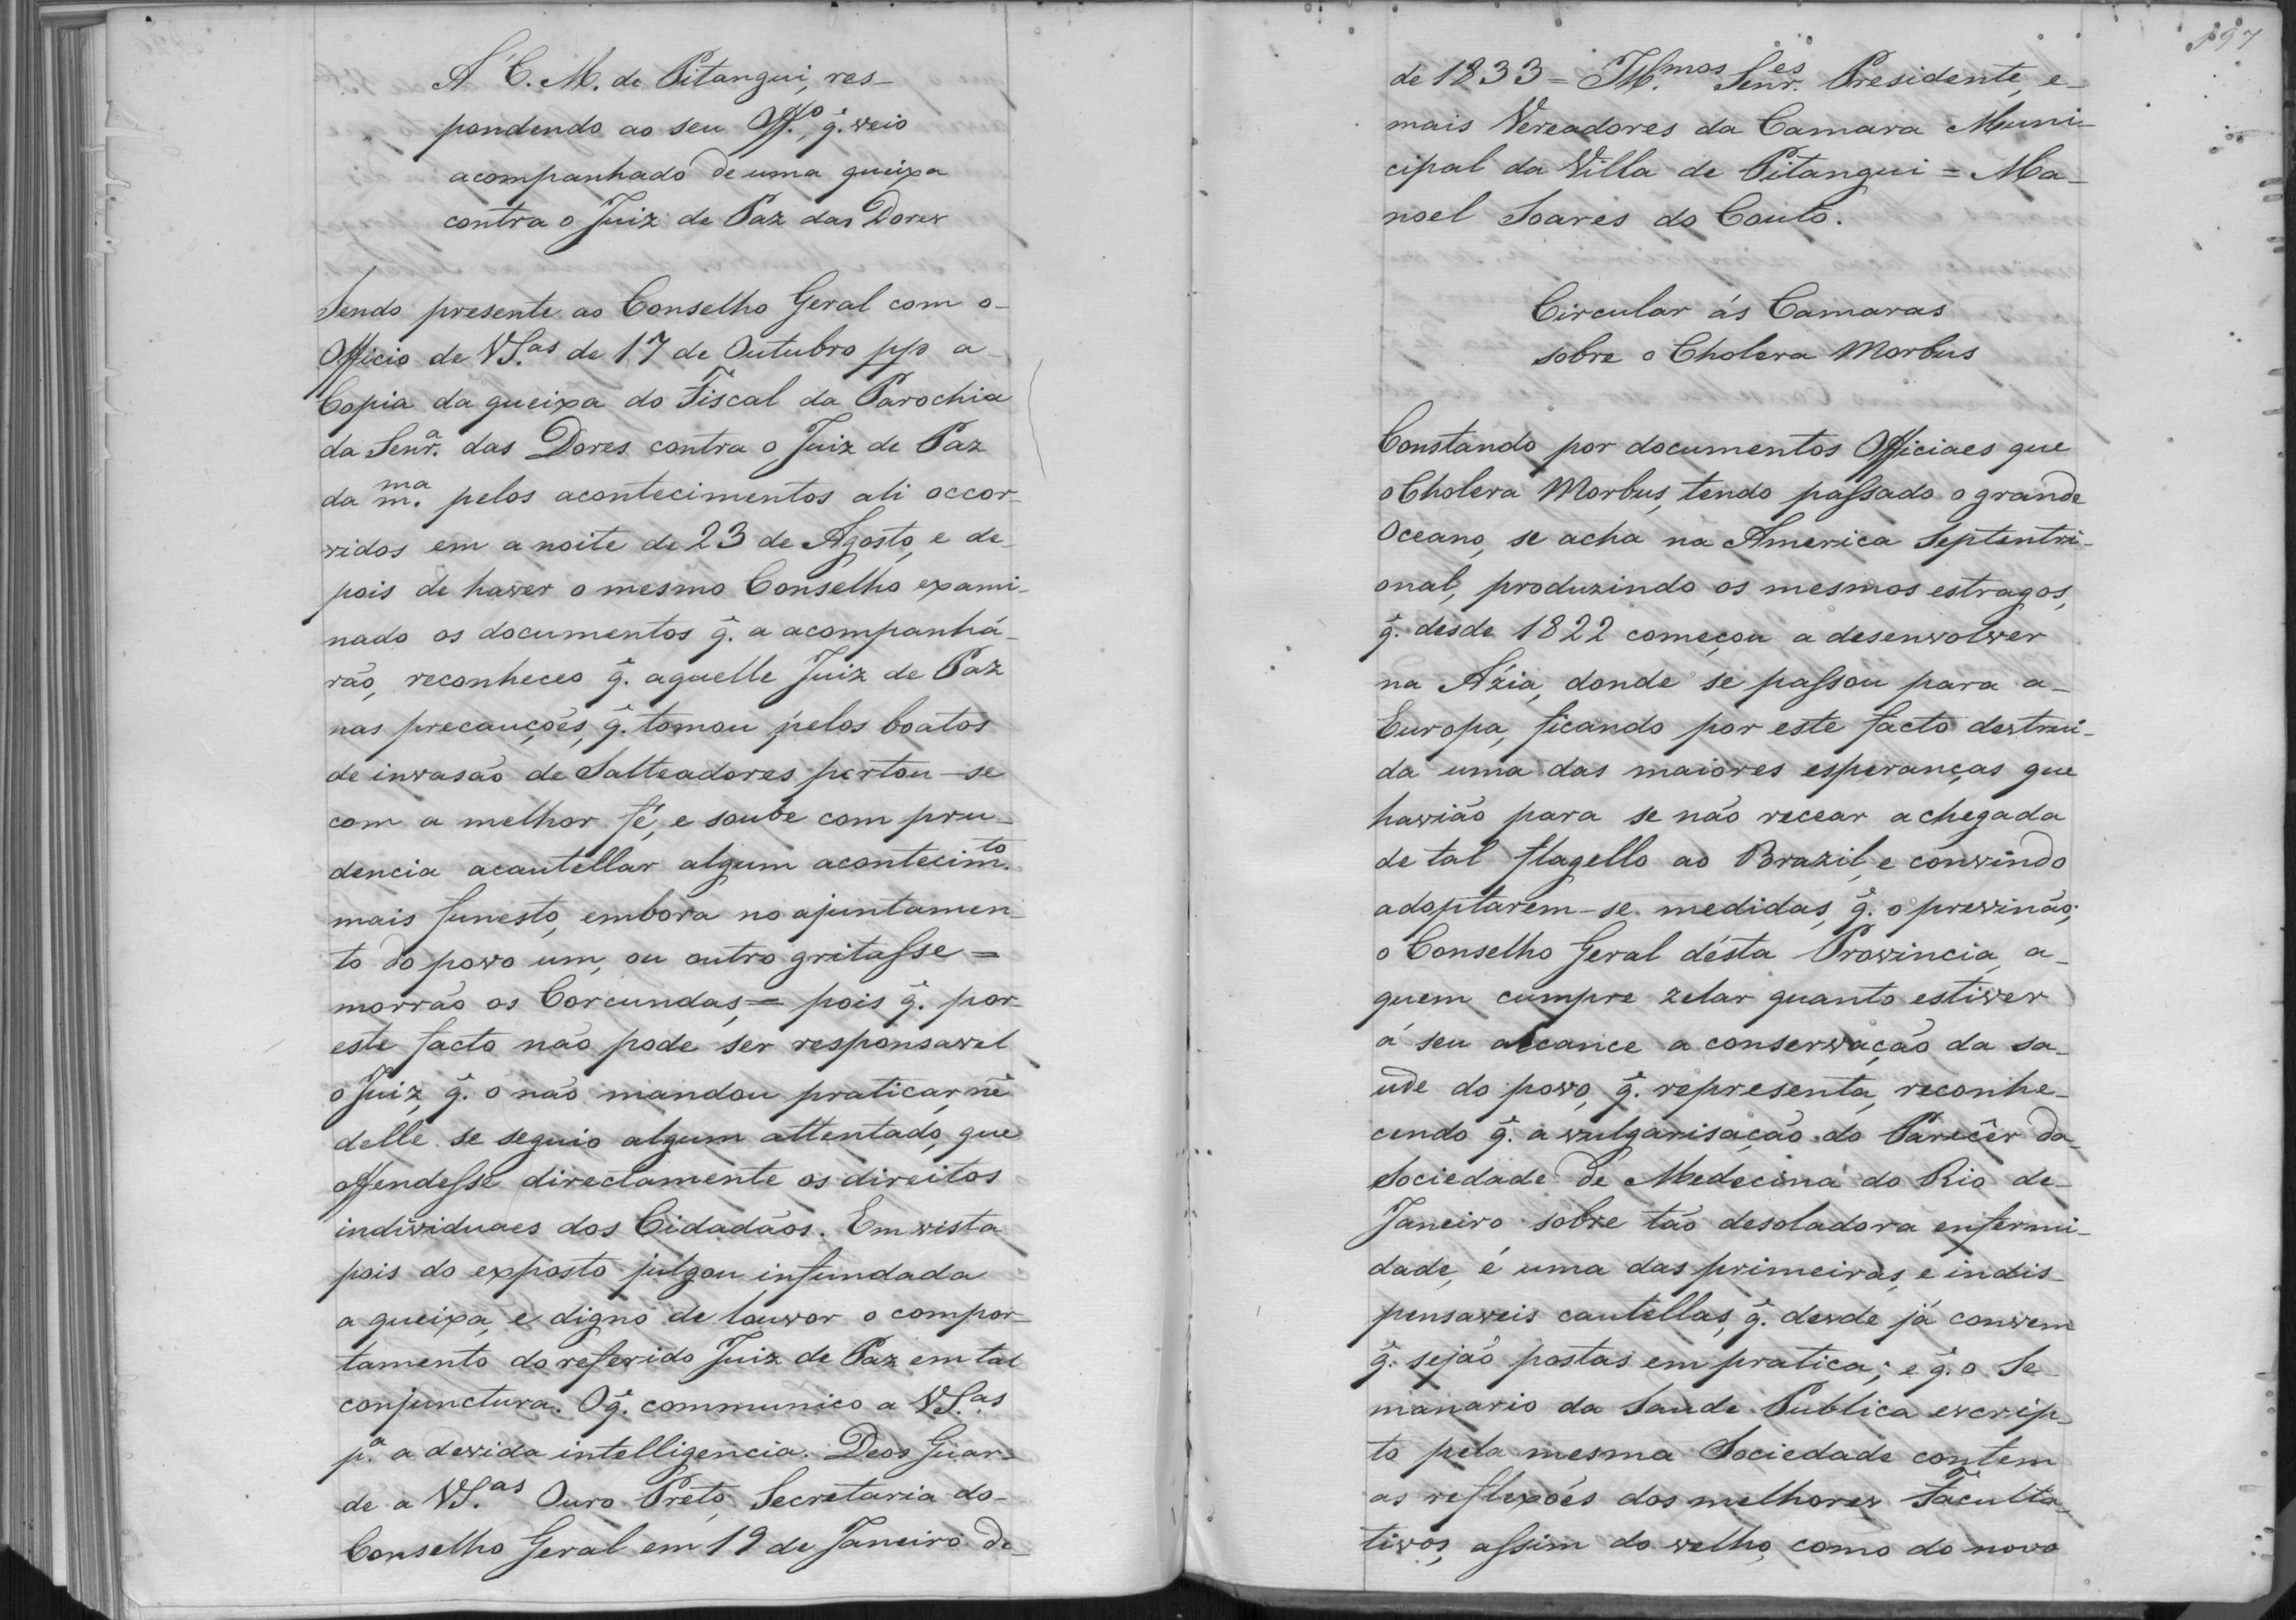 A' C. M. de Pitangui, res-
pondendo ao seu Off.º, q̃. veio
acompanhado de uma queixa
contra o Juiz de Paz das Dores
Sendo presente ao Conselho Geral com o-
Officio de VS.as de 17 de Outubro pp a-
Copia da queixa do Fiscal da Parochia
da Senr.a das Dores contra o Juiz de Paz
da m.ma pelos acontecimentos ali occor-
ridos em a noite de 23 de Agosto, e de-
pois de haver o mesmo Conselho exami-
nado os documentos q̃. a acompanhá-
rão, reconheceo q̃. aquelle Juiz de Paz
nas precauções, q̃. tomou pelos boatos
de invasão de Salteadores portou-se
com a melhor fé, e soube com pru-
dencia acautellar algum acontecim.to
mais funesto, embora no ajuntamen-
to do povo um, ou outro gritasse =
morrão os Corcundas, = pois q̃. por-
este facto não pode ser responsavel
o Juiz, q̃. o não mandou praticar, nẽ
delle se seguio algum attentado, que
offendesse directamente os direitos
individuaes dos Cidadãos. Em vista
pois do exposto julgou infundada
a queixa, e digno de louvor o compor-
tamento do referido Juiz de Paz em tal
conjunctura. O q̃. communico a VS.as
p.a a devida intelligencia. Deos Guar-
de a VS.as Ouro Preto, Secretaria do-
Conselho Geral em 19 de Janeiro de-
197
de 1833 = Ill.mos Senr.es Presidente, e-
mais Vereadores da Camara Muni-
cipal da Villa de Pitangui = Ma-
noel Soares do Couto.
Circular ás Camaras
sobre o Cholera Morbus
Constando por documentos Officiaes que
o Cholera Morbus, tendo passado o grande
Oceano, se acha na America Septentri-
onal, produzindo os mesmos estragos,
q̃. desde 1822 começou a desenvolver
na Ázia, donde se passou para a-
Europa, ficando por este facto destrui-
da uma das maiores esperanças que
havião para se não recear a chegada
de tal flagello ao Brazil, e convindo
adoptarem-se medidas, q̃. o previnão;
o Conselho Geral désta Provincia, a-
quem cumpre zelar quanto estiver
á seu alcance a conservação da sa-
ude do povo, q̃. representa, reconhe-
cendo q̃. a vulgarisação do Parecêr da-
Sociedade de Medecina do Rio de-
Janeiro sobre tão desoladora enfermi-
dade, é uma das primeiras, e indis-
pensaveis cautellas, q̃. desde já convem
q̃. sejão postas em pratica; e q̃. o Se-
manario da Saude Publica escrip-
to pela mesma Sociedade contem
as reflexões dos melhores Faculta-
tivos, assim do velho, como do novo